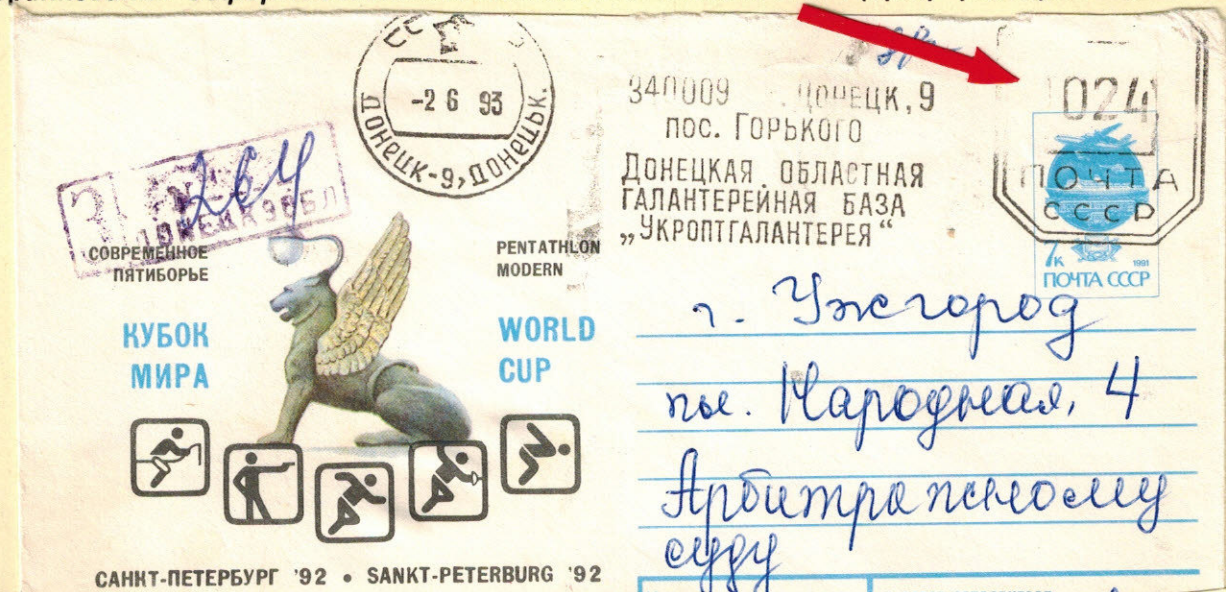 -2 6 93
ДОНЕЦК-9, ДОНЕЦЬК.
340009 ДОНЕЦК, 9
ПОС. ГОРЬКОГО
ДОНЕЦКАЯ ОБЛАСТНАЯ
ГАЛАНТЕРЕЙНАЯ БАЗА
„УКРОПТГАЛАНТЕРЕЯ“
024
ПОЧТА
СССР
7к 1991
ПОЧТА СССР
З №
264
СОВРЕМЕННОЕ
ПЯТИБОРЬЕ
PENTATHLON
MODERN
КУБОК
МИРА
WORLD
CUP
САНКТ-ПЕТЕРБУРГ '92 • SANKT-PETERBURG '92
г. Ужгород
пл. Народная, 4
Арбитражному
суду